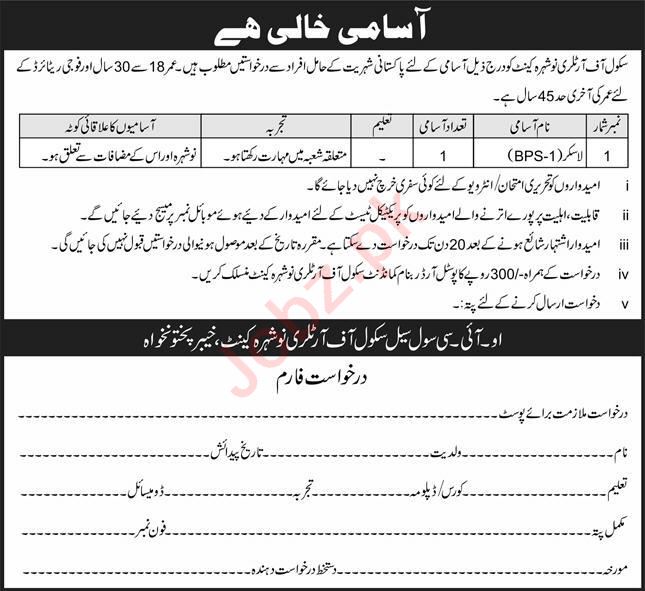 آسامی خالی ھے
سکول آف آرٹلری نوشہرہ کینٹ کو درج ذیل آسامی کے لئے پاکستانی شہریت کے حامل افراد سے درخواستیں مطلوب ہیں۔ عمر 18 سے 30 سال اور فوجی ریٹائرڈ کے
لئے عمر کی آخری حد 45 سال ہے۔
نمبر شمار نام آسامی تعداد آسامی تعلیم تجربہ آسامیوں کا علاقائی کوٹہ
1 لاسکر (BPS-1) 1 - متعلقہ شعبہ میں مہارت رکھتا ہو۔ نوشہرہ اور اس کے مضافات سے تعلق ہو۔
i امیدواروں کو تحریری امتحان/انٹرویو کے لئے کوئی سفری خرچ نہیں دیا جائے گا۔
ii قابلیت، اہلیت پر پورے اترنے والے امیدواروں کو پریکٹیکل ٹیسٹ کے لئے امیدوار کے دیئے ہوئے موبائل نمبر پر میسج دیئے جائیں گے۔
iii امیدوار اشتہار شائع ہونے کے بعد 20 دن تک درخواست دے سکتا ہے۔ مقررہ تاریخ کے بعد موصول ہونیوالی درخواستیں قبول نہیں کی جائیں گی۔
iv درخواست کے ہمراہ -/300 روپے کا پوسٹل آرڈر بنام کمانڈنٹ سکول آف آرٹلری نوشہرہ کینٹ منسلک کریں۔
v دخواست ارسال کرنے کے لئے پتہ:۔
او۔آئی۔سی سول سیل سکول آف آرٹلری نوشہرہ کینٹ، خیبر پختونخواہ
درخواست فارم
درخواست ملازمت برائے پوسٹ
نام ولدیت تاریخ پیدائش
تعلیم کورس/ڈپلومہ تجربہ ڈومیسائل
مکمل پتہ فون نمبر
مورخہ دستخط درخواست دہندہ
Jobz.pk